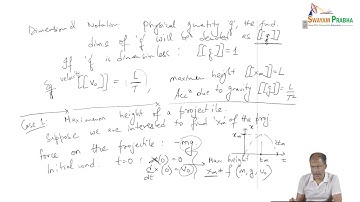 SWAYAM PRABHA
Dimension & Notation Physical quantity 'q', the fund.
dims of 'q' will be denoted as [[q]]
If 'q' is dimensionless : [[q]] = 1
Eg velocity [[v₀]] = L/T, maximum height [[xm]] = L
Accⁿ due to gravity [[g]] = L/T²
Case 1: Maximum height of a projectile.
Suppose we are interested to find 'xm' of the proj.
force on the projectile : -mg
Initial cond. t=0 : x(0) = 0
dx/dt (0) = v₀
Max. height
xm = f(m, g, v₀)
xm
tm
2tm
t